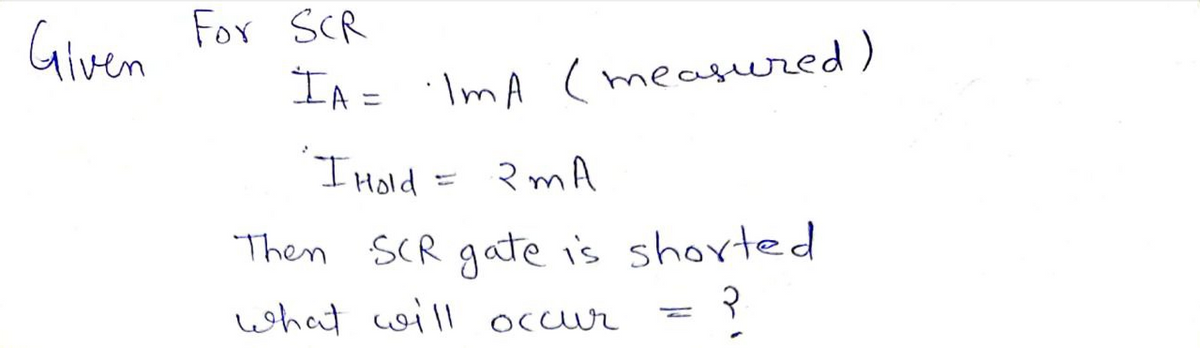 Given For SCR
IA = 1mA (measured)
IHold = 2mA
Then SCR gate is shorted
what will occur = ?